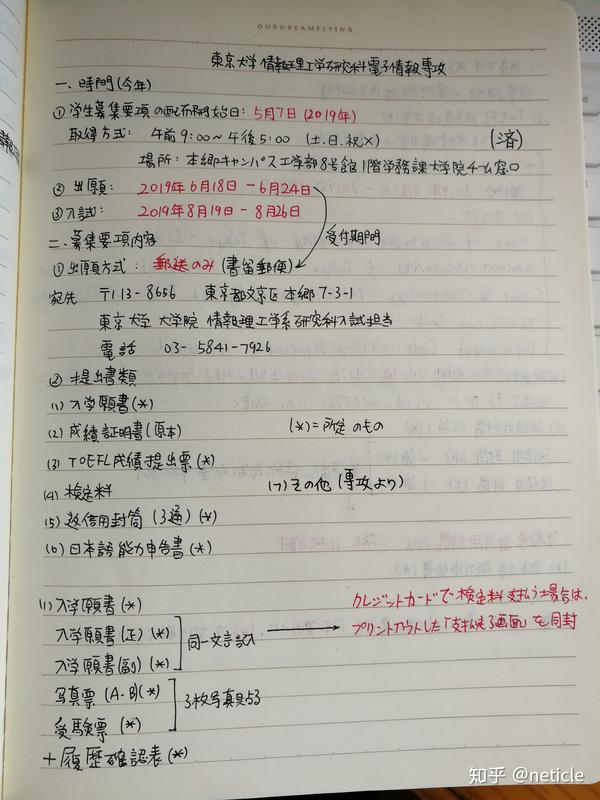 OURDREAMFLYING
東京大学 情報理工学研究科 電子情報専攻
一、時間(今年)
① 学生募集要項の配布開始日: 5月7日 (2019年)
取得方式: 午前9:00~午後5:00 (土.日.祝×) (済)
場所: 本郷キャンパス工学部8号館1階学務課大学院チーム窓口
② 出願: 2019年6月18日 - 6月24日
③ 入試: 2019年8月19日 - 8月26日
受付期間
二、募集要項内容
① 出願方式: 郵送のみ (書留郵便)
宛先 〒113-8656 東京都文京区本郷7-3-1
東京大学 大学院 情報理工学系研究科入試担当
電話 03-5841-7926
② 提出書類
(1) 入学願書(*)
(2) 成績証明書(原本) (*)=所定のもの
(3) TOEFL成績提出票(*)
(4) 検定料 (7)その他(専攻より)
(5) 返信用封筒(3通)(*)
(6) 日本語能力申告書(*)
(1) 入学願書(*)
クレジットカードで検定料支払う場合は、
プリントアウトした「支払完了画面」を同封
入学願書(正)(*)
同一文言記入
入学願書(副)(*)
写真票(A・B)(*)
3枚写真貼る
受験票 (*)
+履歴確認表(*)
知乎 @neticle